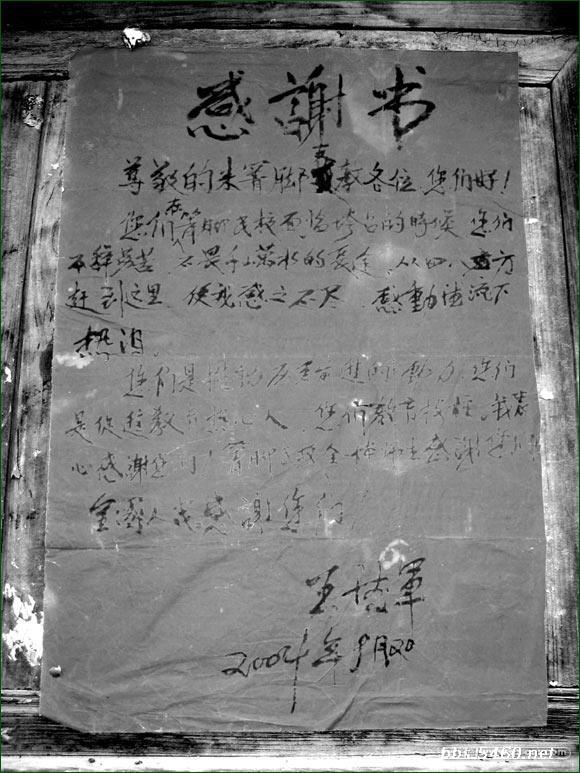 感謝书
尊敬的来箐脚支教各位 您们好！
您们在箐脚民校面临垮台的時候 您们
不辞劳苦 不畏千山萬水的長途 从四八方
赶到这里 使我感之不尽 感動 流下
热泪
您们是推動 動力 您们
是 教育 热心人 您们 教育 我衷
心感謝您们！箐脚 校全体师生感謝您们
全 人民感謝您们
王 軍
2004年9月20
bbs.5460.net